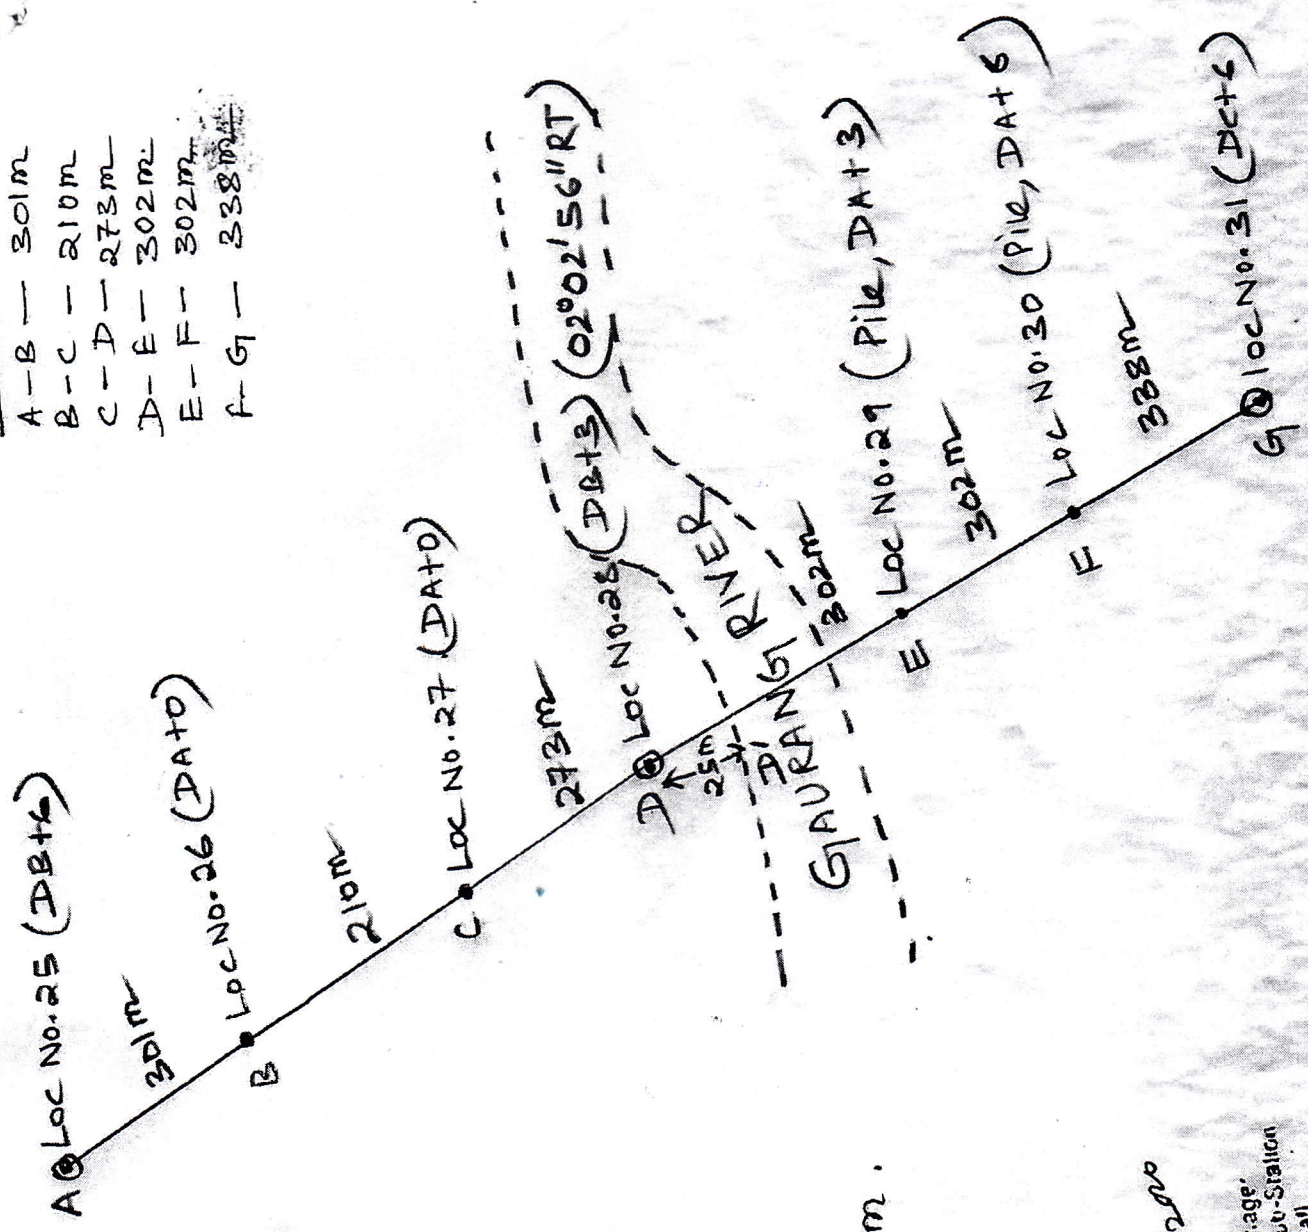 A-B — 301m
B-C — 210m
C-D — 273m
D-E — 302m
E-F — 302m
F-G — 338m
A LOC NO.25 (DB+6)
301m
B LOC NO.26 (DA+0)
210m
C LOC NO.27 (DA+0)
273m
D LOC NO.28 (DB+3) (02°02'56"RT)
25m
D'
GAURANG RIVER
302m
E LOC NO.29 (Pile, DA+3)
302m
F LOC NO.30 (Pile, DA+6)
338m
G LOC NO.31 (DC+6)
m.